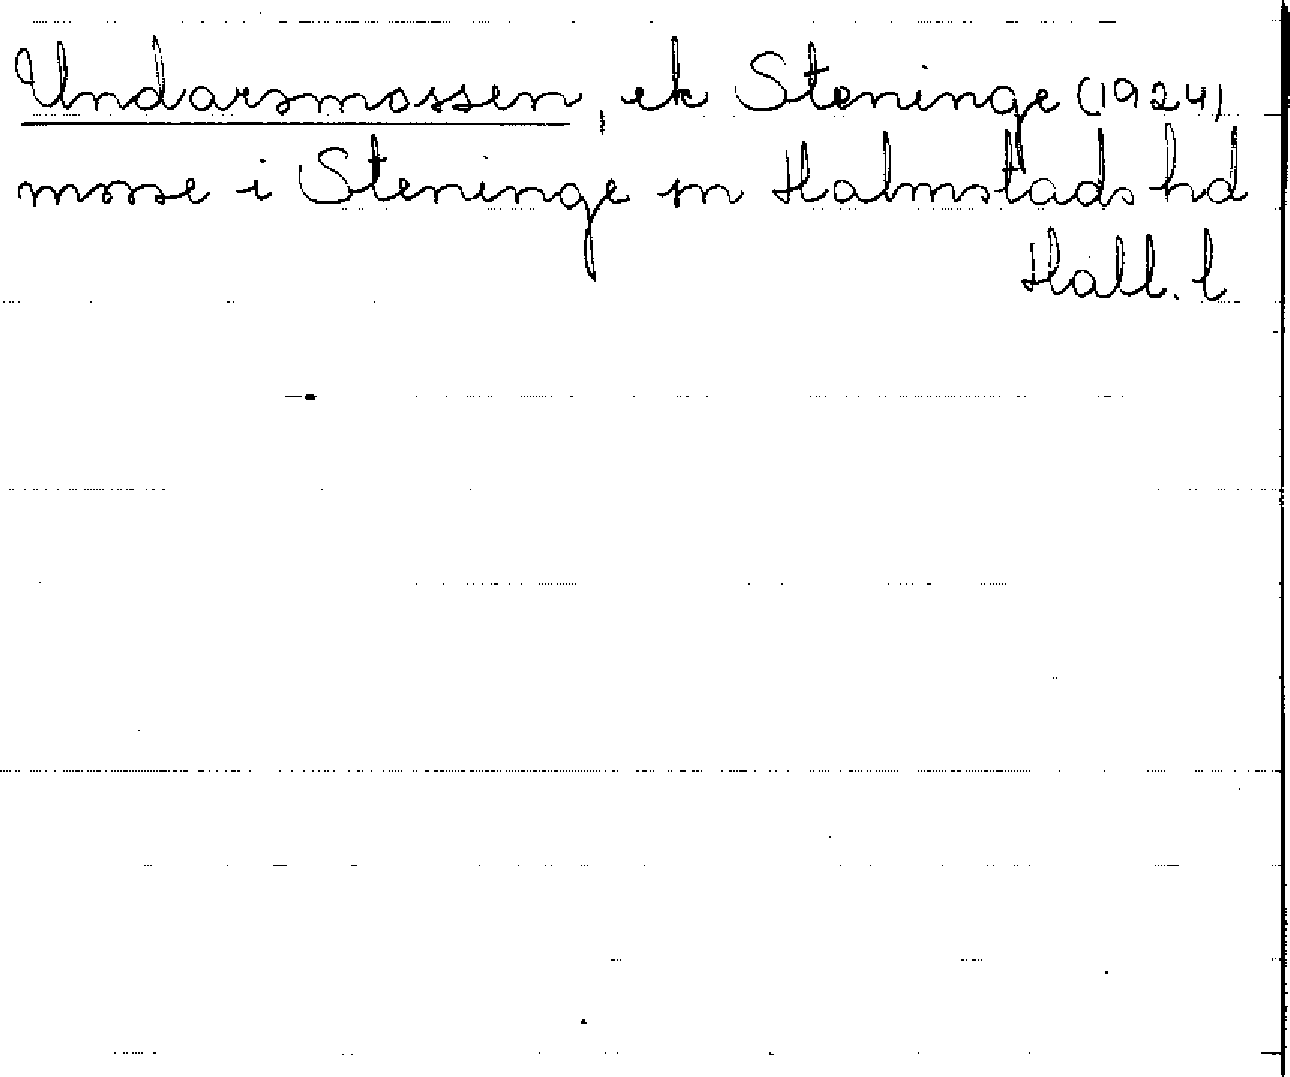 Undarsmossen, ek Steninge (1924)
mosse i Steninge sn Halmstads hd
Hall. l